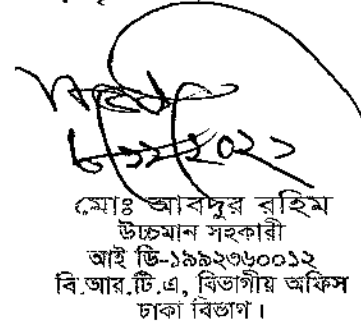 ৮/১২/২০২১
মোঃ আবদুর রহিম
উচ্চমান সহকারী
আই ডি-১৯৯২৩৬০০১২
বি.আর.টি.এ, বিভাগীয় অফিস
ঢাকা বিভাগ।